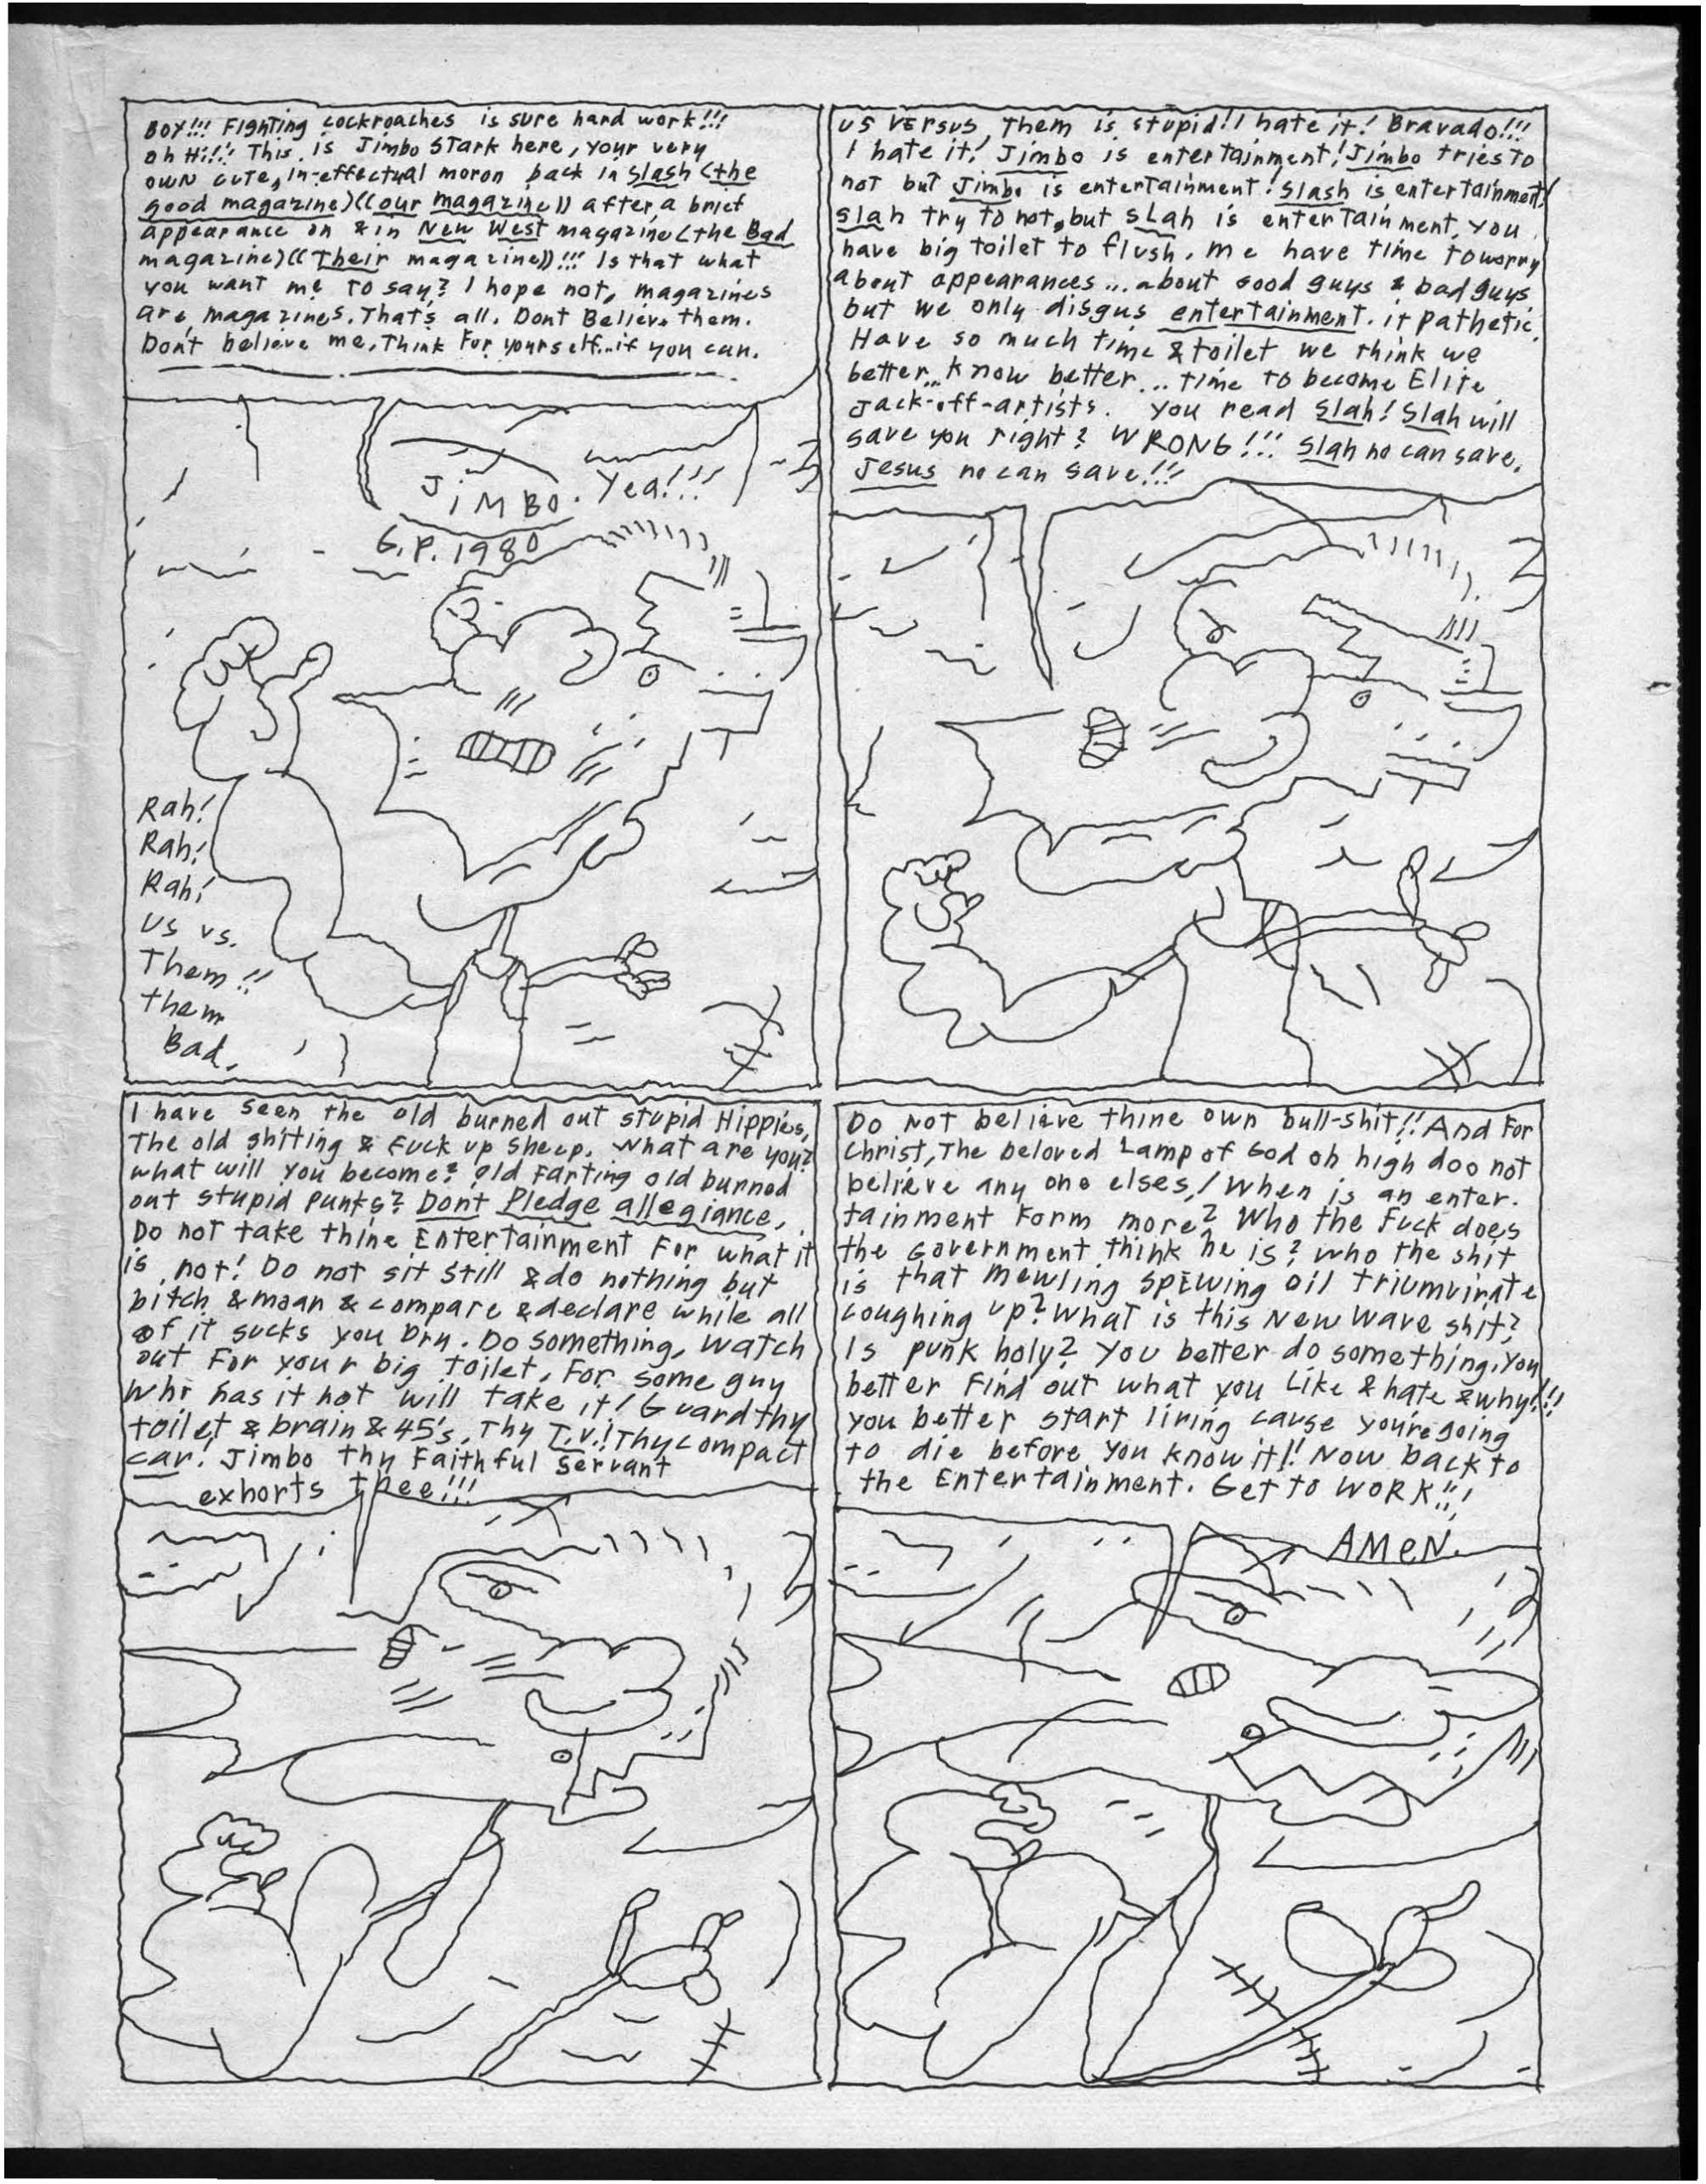 BOY!!! Fighting cockroaches is sure hard work!!!
oh Hi!!! This is Jimbo Stark here, your very
own cute, in-effectual moron back in Slash (the
good magazine)((our magazine)) after a brief
appearance on & in New West magazine (the Bad
magazine)((Their magazine))!!! Is that what
you want me to say? I hope not, magazines
are magazines. That's all. Dont Believe them.
Don't believe me. Think For yourself...if you can.
JiMBO. Yea!!!
G.P. 1980
Rah!
Rah!
Rah!
US vs.
Them!!
them
Bad.
US VERSUS Them is stupid! I hate it! Bravado!!!
I hate it! Jimbo is entertainment! Jimbo tries to
not but Jimbo is entertainment! Slash is entertainment!
Slah try to not, but Slah is entertainment, you
have big toilet to flush. Me have time to worry
about appearances... about good guys & bad guys
but we only disgus entertainment. it pathetic.
Have so much time & toilet we think we
better... know better... time to become Elite
Jack-off-artists. you read Slah! Slah will
save you right? WRONG!!! Slah no can save.
Jesus no can save!!!
I have seen the old burned out stupid Hippies,
The old shiting & Fuck up sheep. What are you?
what will you become? old Farting old burned
out stupid Punks? Dont Pledge allegiance,
Do not take thine Entertainment For what it
is not! Do not sit still & do nothing but
bitch & moan & compare & declare while all
of it sucks you Dry. Do something, watch
out For your big toilet, For some guy
Who has it not will take it! Guard thy
toilet & brain & 45's, Thy T.V.! Thy compact
car! Jimbo thy Faithful Servant
exhorts thee!!!
Do Not believe thine own bull-shit!! And For
Christ, The beloved Lamp of God on high doo not
believe any one elses! When is an enter-
tainment Form more? Who the Fuck does
the Government think he is? Who the shit
is that mewling spewing oil triumvirate
coughing up? What is this New Wave shit?
Is punk holy? You better do something. You
better Find out what you Like & hate & why!!!
you better start living cause you're going
to die before you know it!! Now back to
the Entertainment. Get to WORK!!!
AMeN.